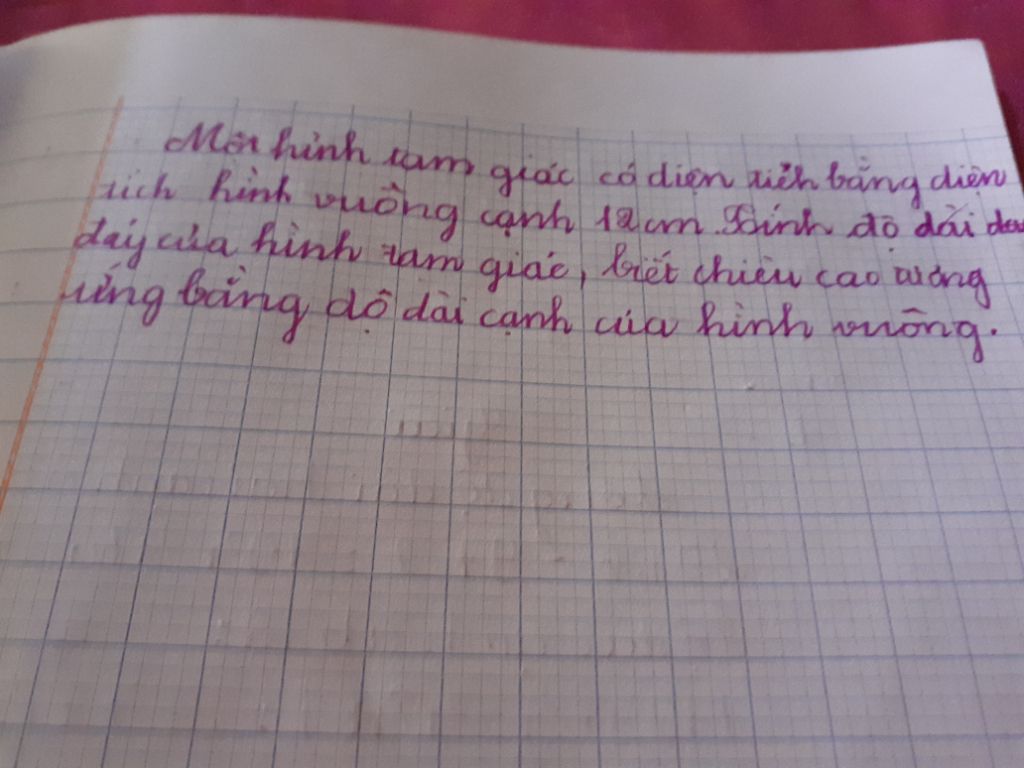 Một hình tam giác có diện tích bằng diện
tích hình vuông cạnh 12cm. Tính độ dài
đáy của hình tam giác, biết chiều cao tương
ứng bằng độ dài cạnh của hình vuông.